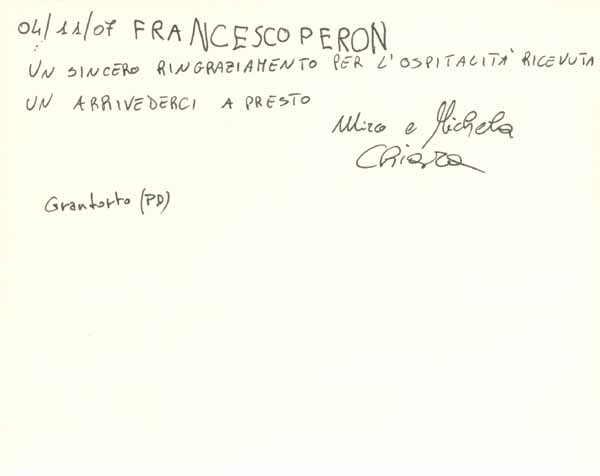 04/11/07 FRANCESCO PERON
UN SINCERO RINGRAZIAMENTO PER L'OSPITALITA' RICEVUTA
UN ARRIVEDERCI A PRESTO
Mirco e Michela
Chiara
Grantorto (PD)